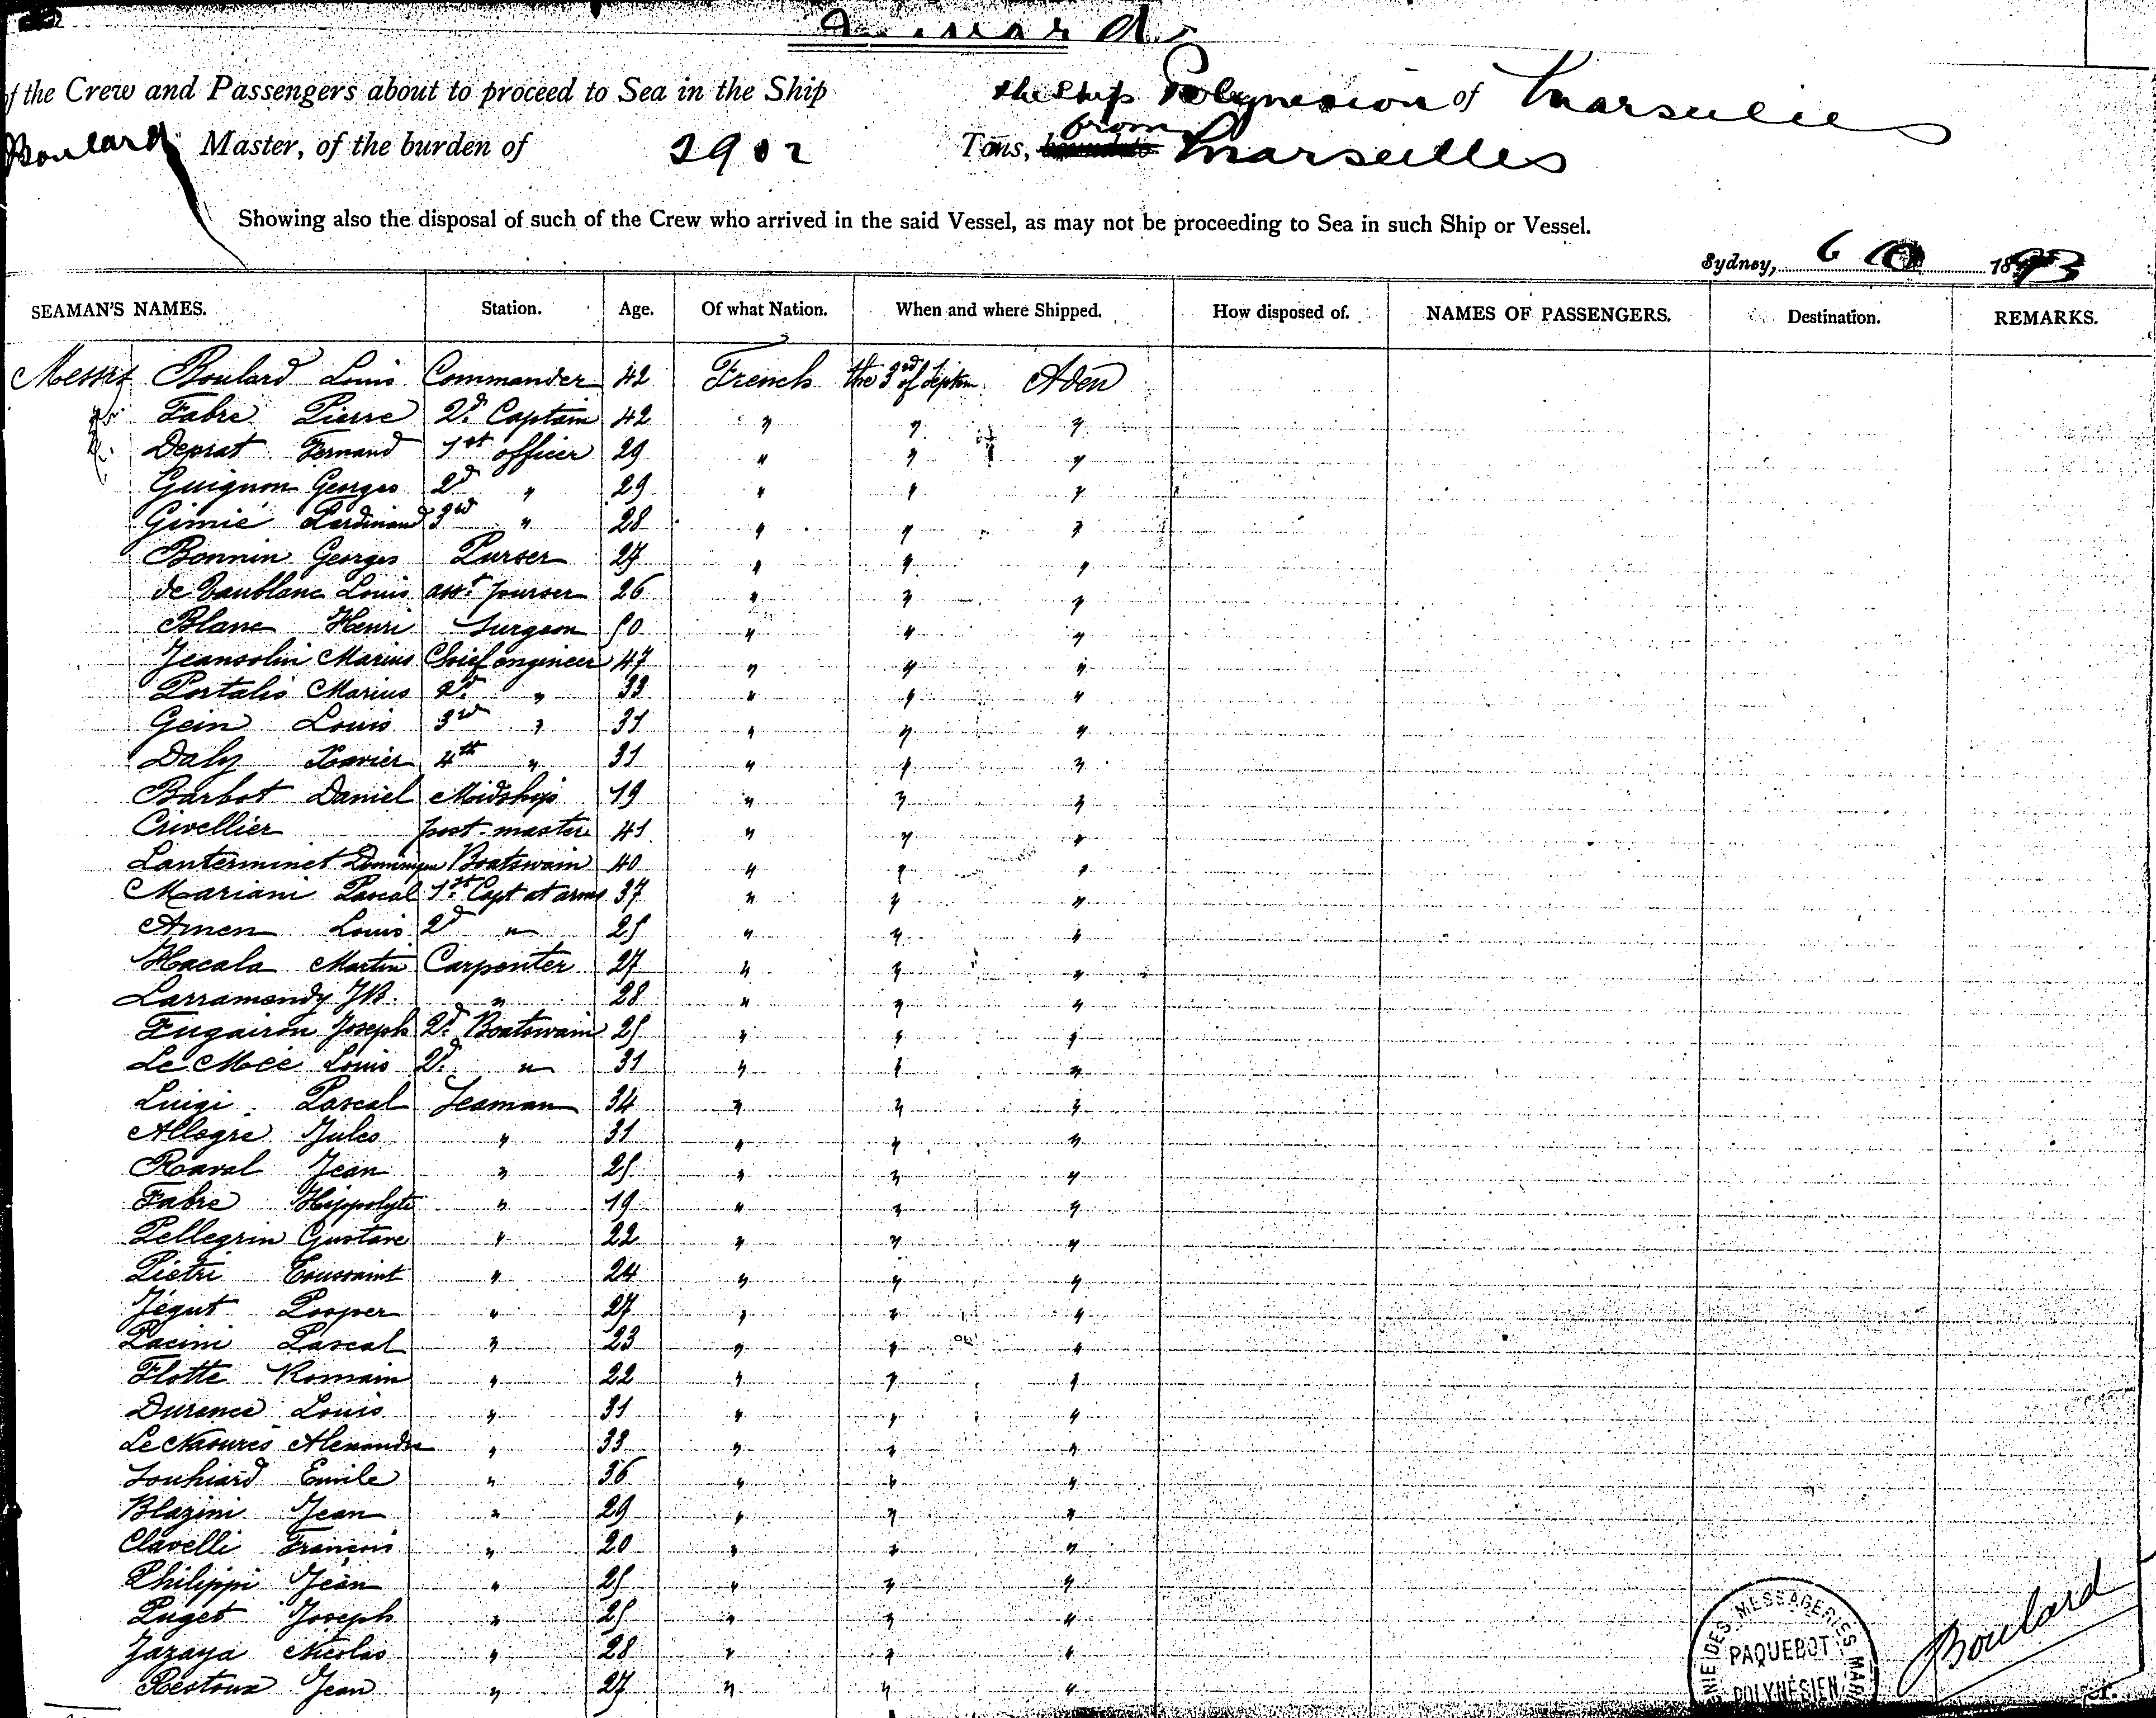 Inward
of the Crew and Passengers about to proceed to Sea in the Ship the Ship Polynesien of Marseilles
Boulard Master, of the burden of 2902 Tons, from Marseilles
Showing also the disposal of such of the Crew who arrived in the said Vessel, as may not be proceeding to Sea in such Ship or Vessel.
Sydney, 6 10 1893
SEAMAN'S NAMES. Station. Age. Of what Nation. When and where Shipped. How disposed of. NAMES OF PASSENGERS. Destination. REMARKS.
Messrs Boulard Louis Commander 42 French the 3rd of Septem. Aden
Fabre Pierre 2d. Captain 42 " " "
Deprat Fernand 1st officer 29 " " "
Guignon Georges 2d " 29 " " "
Gimié Ferdinand 3rd " 28 " " "
Bonnin Georges Purser 27 " " "
de Vaublanc Louis asst. purser 26 " " "
Blanc Henri Surgeon 50 " " "
Jeansolin Marius Chief engineer 47 " " "
Portalis Marius 2d. " 33 " " "
Gein Louis 3rd " 31 " " "
Daly Xavier 4th " 31 " " "
Barbot Daniel Midship 19 " " "
Crivellier post-master 41 " " "
Lanterminet Dominique Boatswain 40 " " "
Mariani Pascal 1st. Capt at arms 37 " " "
Amen Louis 2d " 25 " " "
Hacala Martin Carpenter 27 " " "
Larramendy JB. " 28 " " "
Fugairon Joseph 2d. Boatswain 25 " " "
Le Moeé Louis 2d. " 31 " " "
Luigi Pascal Seaman 34 " " "
Allegre Jules " 31 " " "
Raval Jean " 25 " " "
Fabre Hippolyte " 19 " " "
Pellegrin Gustave " 22 " " "
Pietri Toussaint " 24 " " "
Jégut Prosper " 27 " " "
Pacini Pascal " 23 " " "
Flotte Romain " 22 " " "
Durence Louis " 31 " " "
Le Naoures Alexandre " 33 " " "
Souhiard Emile " 36 " " "
Blazini Jean " 29 " " "
Clavelli François " 20 " " "
Philippi Jean " 25 " " "
Puget Joseph " 25 " " "
Zazaya Nicolas " 28 " " "
Restoux Jean " 27 " " "
DES MESSAGERIES MAR
PAQUEBOT
POLYNÉSIEN
Boulard